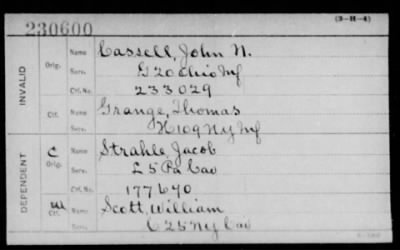 230600
(3-H-4)
INVALID
Orig. Name Cassell, John N.
Serv. G 20 Ohio Inf
Ctf. No. 233029
Ctf. Name Grange, Thomas
Serv. H 109 NY Inf
DEPENDENT
C Orig. Name Strahle, Jacob
Serv. L 5 Pa Cav
Ctf. No. 177670
M Ctf. Name Scott, William
Serv. C 25 NY Cav